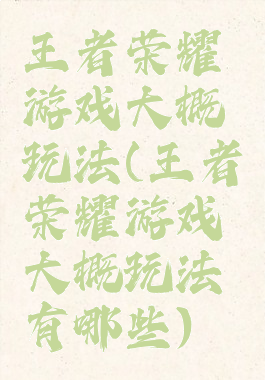 王者荣耀
游戏大概
玩法(王者
荣耀游戏
大概玩法
有哪些)